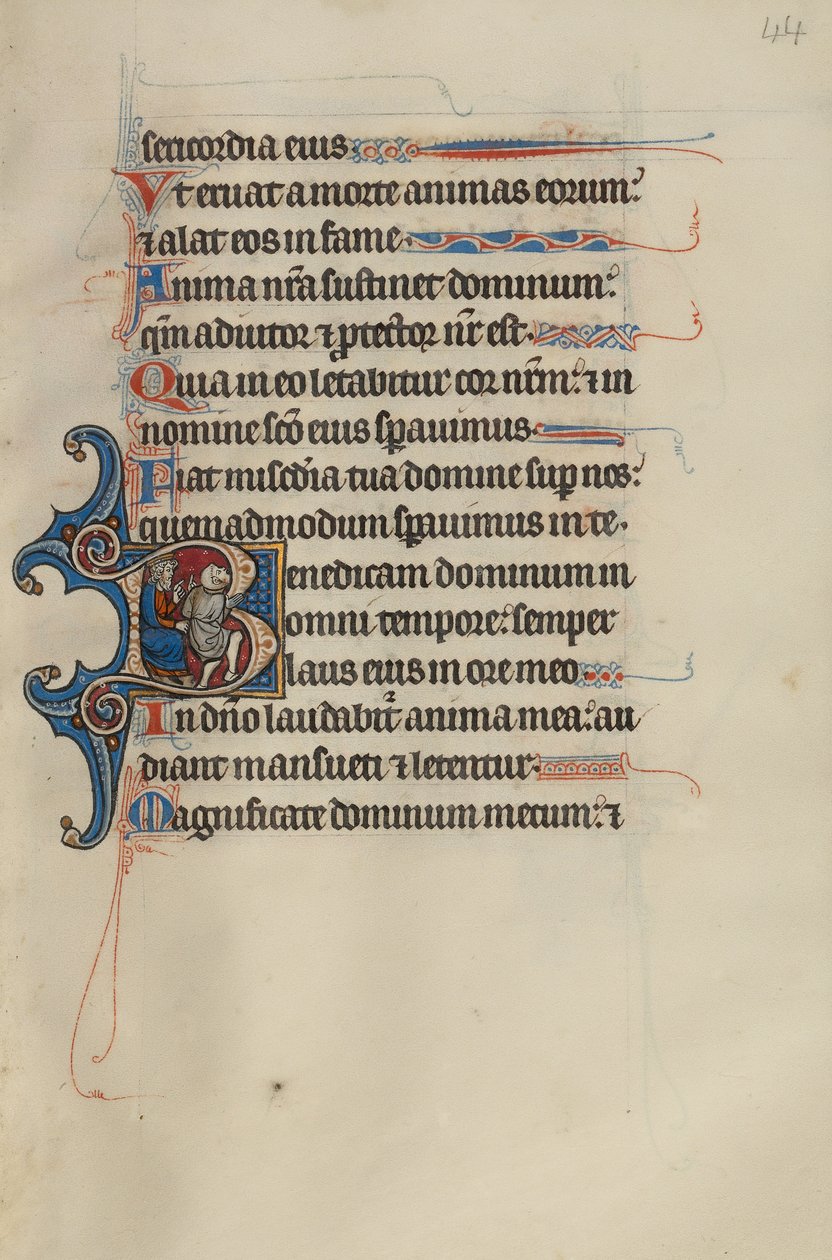 44
sericordia eius.
Vt eruat a morte animas eorum:
⁊ alat eos in fame.
Anima nr̃a sustinet dominum:
qm̃ adiutor ⁊ ꝓtector nr̃ est.
Quia in eo letabitur cor nr̃m: ⁊ in
nomine scõ eius sꝑauimus.
Fiat misc̃dia tua domine suꝑ nos:
quemadmodum sꝑauimus in te.
Benedicam dominum in
omni tempore: semper
laus eius in ore meo.
In dño laudabit᷑ anima mea: au
diant mansueti ⁊ letentur.
Magnificate dominum mecum: ⁊